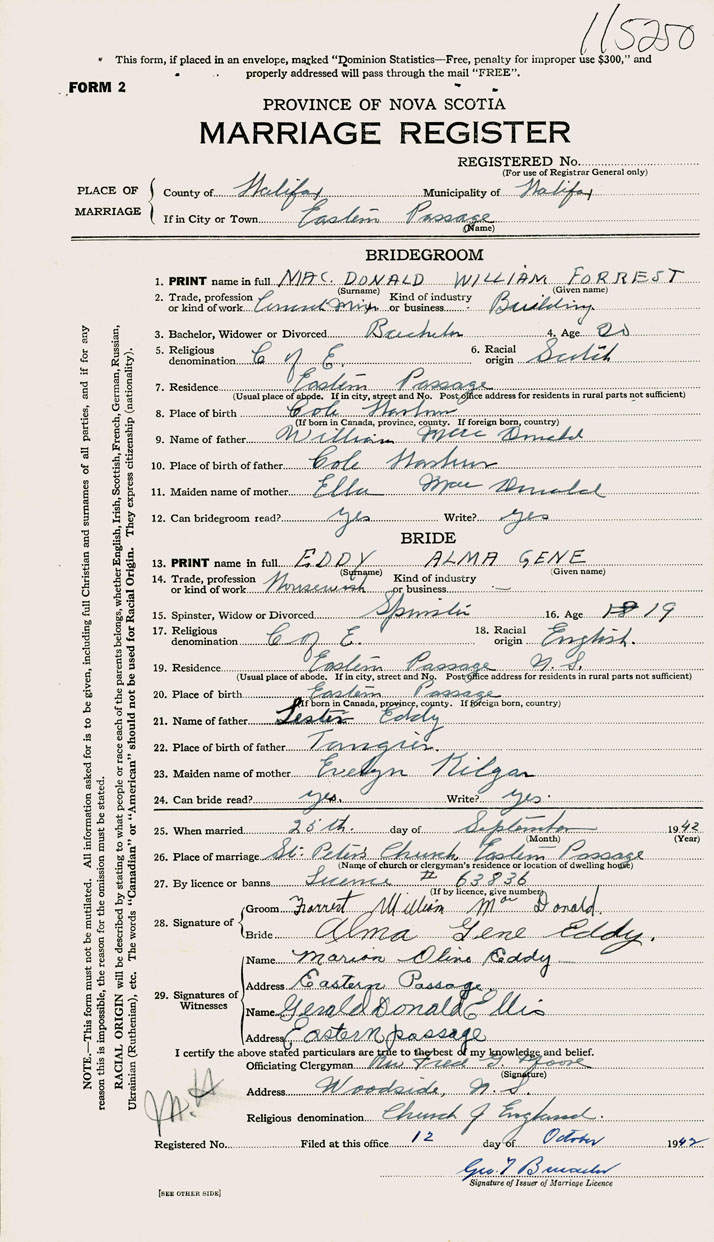 115250
This form, if placed in an envelope, marked "Dominion Statistics—Free, penalty for improper use $300," and
properly addressed will pass through the mail "FREE".
FORM 2
PROVINCE OF NOVA SCOTIA
MARRIAGE REGISTER
REGISTERED No.
(For use of Registrar General only)
PLACE OF MARRIAGE
County of Halifax Municipality of Halifax
If in City or Town Eastern Passage
(Name)
BRIDEGROOM
1. PRINT name in full MAC. DONALD WILLIAM FORREST
(Surname) (Given name)
2. Trade, profession or kind of work Cement Kind of industry or business Building
3. Bachelor, Widower or Divorced Bachelor 4. Age 20
5. Religious denomination C of E 6. Racial origin Scotch
7. Residence Eastern Passage
(Usual place of abode. If in city, street and No. Post office address for residents in rural parts not sufficient)
8. Place of birth Cole Harbour
(If born in Canada, province, county. If foreign born, country)
9. Name of father William Mac Donald
10. Place of birth of father Cole Harbour
11. Maiden name of mother Ella Mac Donald
12. Can bridegroom read? yes Write? yes
BRIDE
13. PRINT name in full EDDY ALMA GENE
(Surname) (Given name)
14. Trade, profession or kind of work Housework Kind of industry or business —
15. Spinster, Widow or Divorced Spinster 16. Age 18 19
17. Religious denomination C of E. 18. Racial origin English.
19. Residence Eastern Passage N.S.
(Usual place of abode. If in city, street and No. Post office address for residents in rural parts not sufficient)
20. Place of birth Eastern Passage
(If born in Canada, province, county. If foreign born, country)
21. Name of father Lester Eddy
22. Place of birth of father Tangier.
23. Maiden name of mother Evelyn Kilgar
24. Can bride read? yes. Write? yes.
25. When married 25th. day of September 1942
(Month) (Year)
26. Place of marriage St. Peters Church Eastern Passage
(Name of church or clergyman's residence or location of dwelling house)
27. By licence or banns License # 63836
(If by licence, give number)
28. Signature of
Groom Forrest William Mac Donald.
Bride Alma Gene Eddy.
29. Signatures of Witnesses
Name Marion Olive Eddy
Address Eastern Passage.
Name Gerald Donald Ellis
Address Eastern passage
I certify the above stated particulars are true to the best of my knowledge and belief.
Officiating Clergyman Rev Fred G. Moore
(Signature)
Address Woodside, N.S.
Religious denomination Church of England.
Registered No. Filed at this office 12 day of October 1942
Geo. T
Signature of Issuer of Marriage Licence
[SEE OTHER SIDE]
M.H
NOTE.—This form must not be mutilated. All information asked for is to be given, including full Christian and surnames of all parties, and if for any
reason this is impossible, the reason for the omission must be stated.
RACIAL ORIGIN will be described by stating to what people or race each of the parents belongs, whether English, Irish, Scottish, French, German, Russian,
Ukrainian (Ruthenian), etc. The words "Canadian" or "American" should not be used for Racial Origin. They express citizenship (nationality).